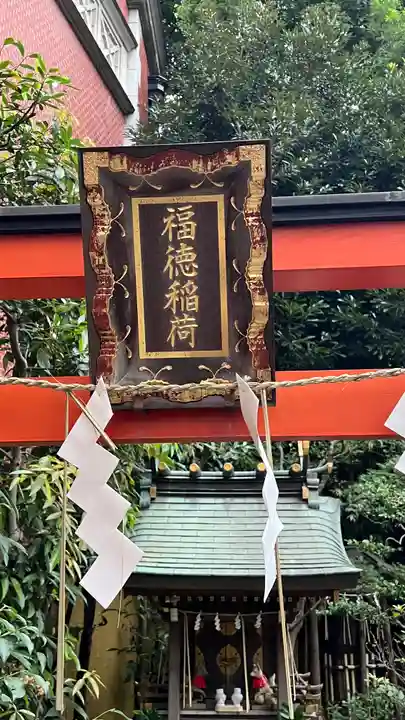 福徳稲荷